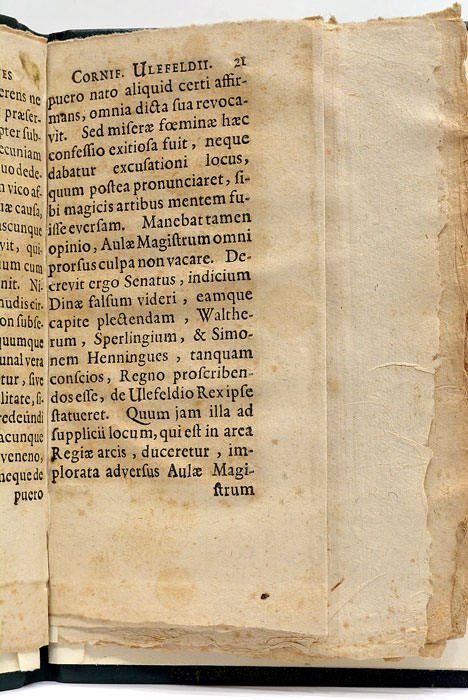 ES
erens ne
præser-
pter sub-
ecuniam
uo dede-
n vico af-
uæ causa,
ascunque
vit, qui-
ium cum
nit. Ni-
nudis cir-
on subse-
quumque
unal vera
tur, sive
litate, si-
redeúndi
acunque
veneno,
neque de
puero
CORNIF. ULEFELDII. 21
puero nato aliquid certi affir-
mans, omnia dicta sua revoca-
vit. Sed miseræ fœminæ hæc
confessio exitiosa fuit, neque
dabatur excusationi locus,
quum postea pronunciaret, si-
bi magicis artibus mentem fu-
isse eversam. Manebat tamen
opinio, Aulæ Magistrum omni
prorsus culpa non vacare. De-
crevit ergo Senatus, indicium
Dinæ falsum videri, eamque
capite plectendam, Walthe-
rum, Sperlingium, & Simo-
nem Henningues, tanquam
conscios, Regno proscriben-
dos esse, de Ulefeldio Rex ipse
statueret. Quum jam illa ad
supplicii locum, qui est in area
Regiæ arcis, duceretur, im-
plorata adversus Aulæ Magi-
strum